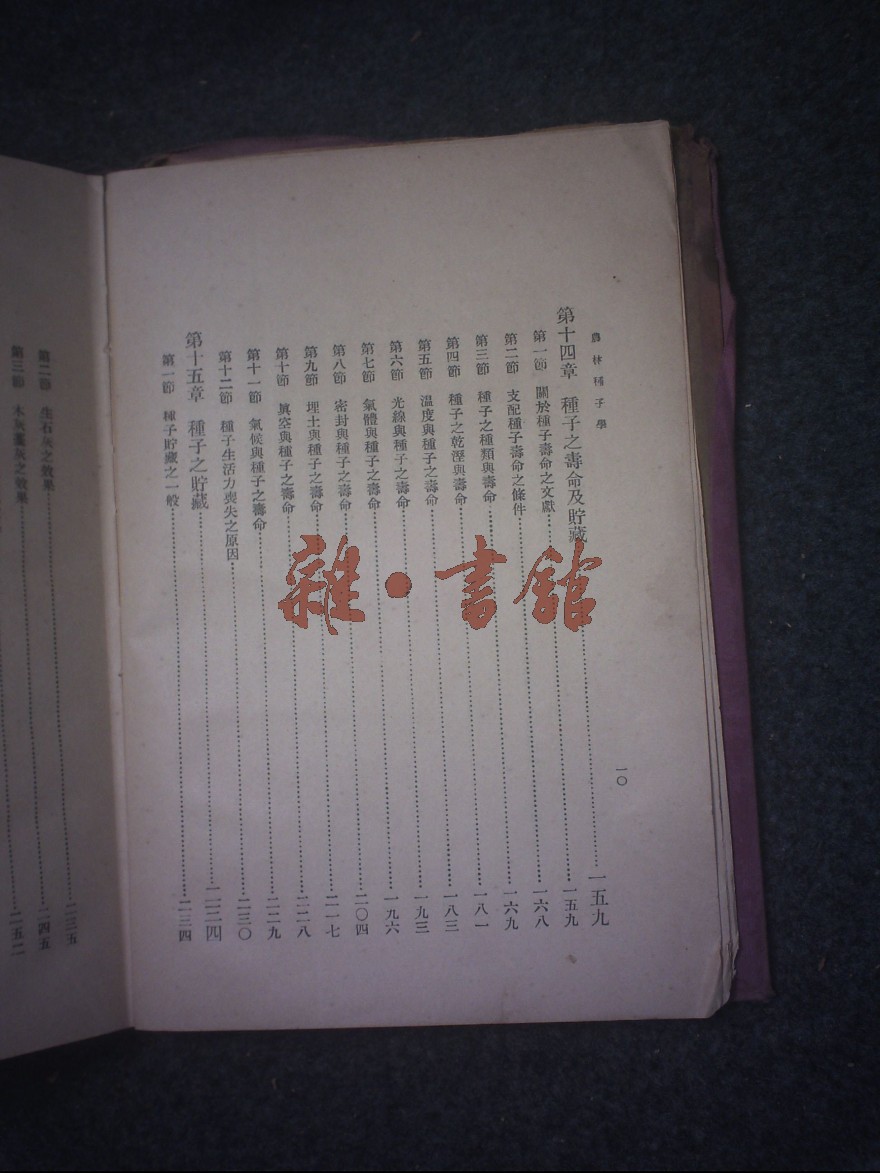 農林種子學
一〇
第十四章 種子之壽命及貯藏……一五九
第一節 關於種子壽命之文獻……一五九
第二節 支配種子壽命之條件……一六八
第三節 種子之種類與壽命……一六九
第四節 種子之乾溼與壽命……一八一
第五節 溫度與種子之壽命……一八三
第六節 光線與種子之壽命……一九三
第七節 氣體與種子之壽命……一九六
第八節 密封與種子之壽命……二〇四
第九節 埋土與種子之壽命……二一七
第十節 眞空與種子之壽命……二二八
第十一節 氣候與種子之壽命……二二九
第十二節 種子生活力喪失之原因……二三〇
第十五章 種子之貯藏……二三四
第一節 種子貯藏之一般……二三四
第二節 生石灰之效果……二三五
第三節 木灰藁灰之效果……二四五
二五二
雜•書館